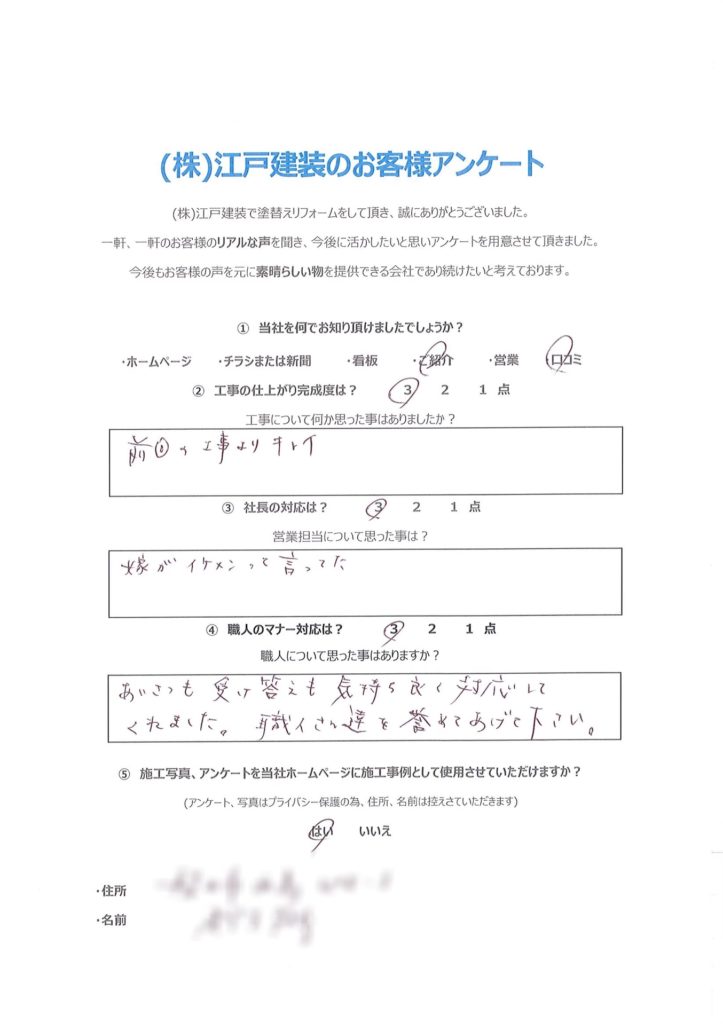 (株)江戸建装のお客様アンケート
(株)江戸建装で塗替えリフォームをして頂き、誠にありがとうございました。
一軒、一軒のお客様のリアルな声を聞き、今後に活かしたいと思いアンケートを用意させて頂きました。
今後もお客様の声を元に素晴らしい物を提供できる会社であり続けたいと考えております。
① 当社を何でお知り頂けましたでしょうか？
・ホームページ ・チラシまたは新聞 ・看板 ・ご紹介 ・営業 ・口コミ
② 工事の仕上がり完成度は？ 3 2 1 点
工事について何か思った事はありましたか？
前回の工事よりキレイ
③ 社長の対応は？ 3 2 1 点
営業担当について思った事は？
嫁がイケメンって言ってた
④ 職人のマナー対応は？ 3 2 1 点
職人について思った事はありますか？
あいさつも受け答えも気持ち良く対応して
くれました。職人さん達を誉めてあげて下さい。
⑤ 施工写真、アンケートを当社ホームページに施工事例として使用させていただけますか？
(アンケート、写真はプライバシー保護の為、住所、名前は控えさていただきます)
はい いいえ
・住所
・名前